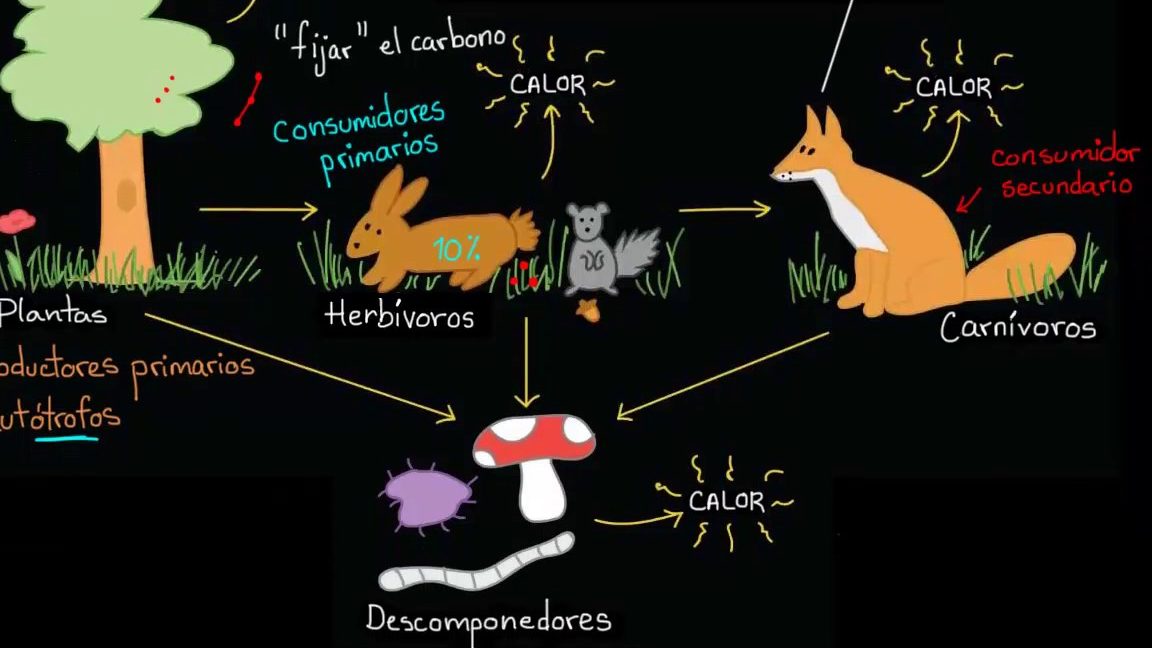 "fijar" el carbono
CALOR
CALOR
Consumidores
primarios
consumidor
secundario
10%
Plantas
Herbívoros
Carnívoros
oductores primarios
utótrofos
CALOR
Descomponedores